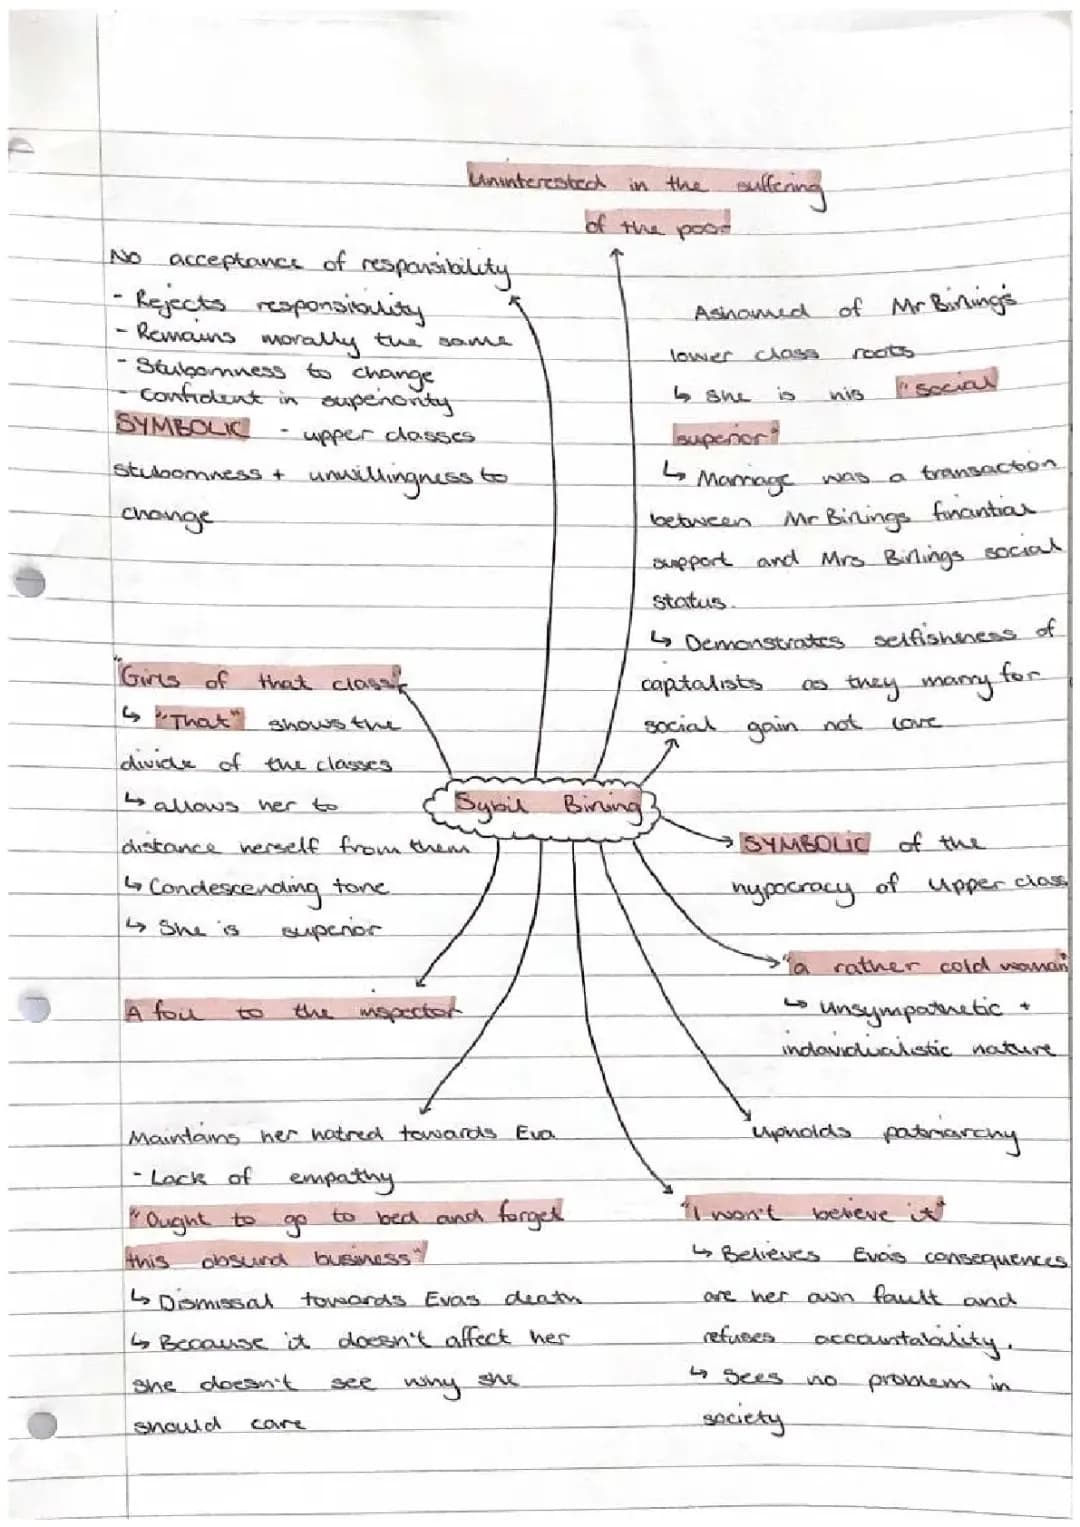 Uninterested in the suffering
of the poor
No acceptance of responsibility
- Rejects responsibility
- Remains morally the same
- Stubornness to change
- Confident in superiority
SYMBOLIC - upper classes
stuboornness + unwillingness to
change
Ashamed of Mr Birling's
lower class roots
↳ she is his "social
superior"
↳ Marriage was a transaction
between Mr Birlings finantial
support and Mrs Birlings social
status.
↳ Demonstrates selfishness of
capitalists as they marry for
social gain not love
"Girls of that class"
↳ "That" shows the
divide of the classes
↳ allows her to
distance herself from them
↳ Condescending tone
↳ She is superior
Sybil Birling
SYMBOLIC of the
hypocracy of upper class
"a rather cold woman"
↳ Unsympathetic +
indavidualistic nature
A foil to the inspector
Maintains her hatred towards Eva
- Lack of empathy
"Ought to go to bed and forget
this absurd business"
↳ Dismissal towards Evas death
↳ Because it doesn't affect her
she doesn't see why she
should care
Upholds patriarchy
"I won't believe it"
↳ Believes Eva's consequences
are her own fault and
refuses accountability.
↳ Sees no problem in
society